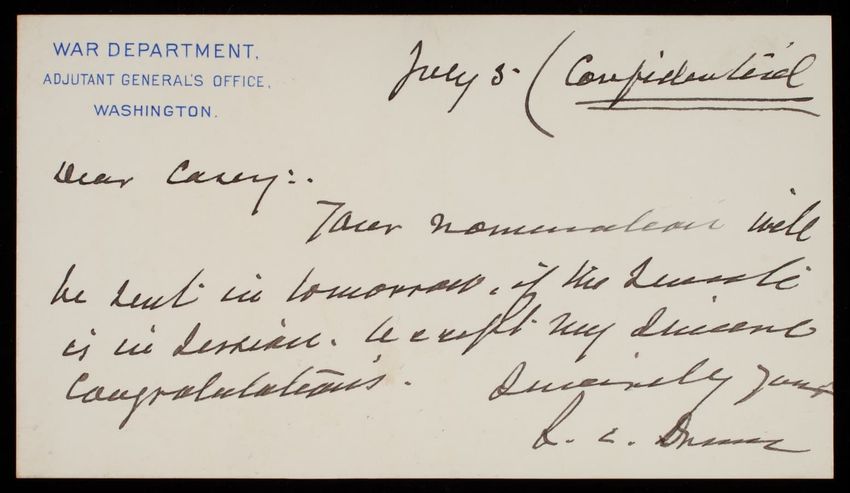 WAR DEPARTMENT,
ADJUTANT GENERAL'S OFFICE,
WASHINGTON.
July 5 (Confidential
Dear Casey:.
Your nomination will
be sent in tomorrow, if the Senate
is in session. Accept my sincere
congratulations.
Sincerely yours
R. C. Drum